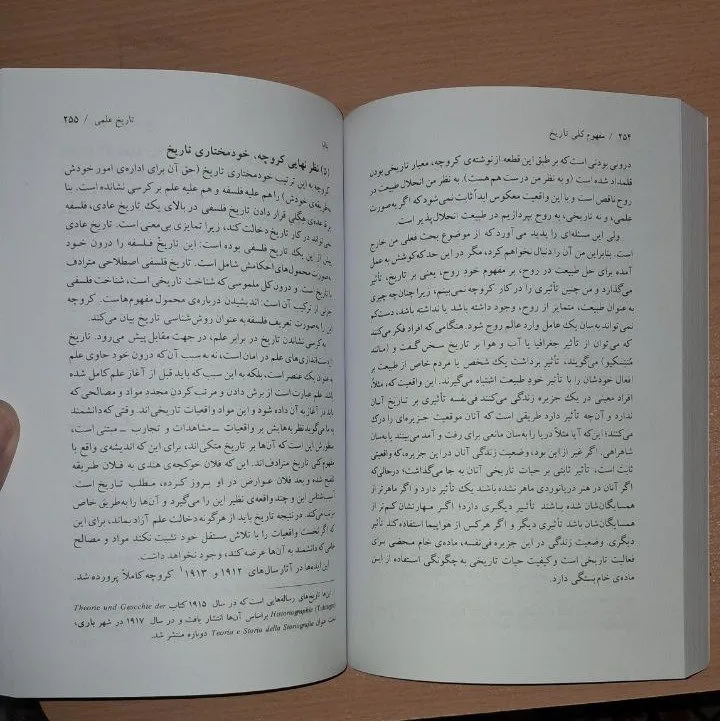 ۲۵۴ / مفهوم کلی تاریخ
درونی بودنی است که بر طبق این قطعه از نوشته‌ی کروچه، معیار تاریخی بودن
قلمداد شده است (و به نظر من درست هم هست). به نظر من انحلال طبیعت در
روح ناقص است و با این واقعیت معکوس ابداً ثابت نمی‌شود که اگر به‌صورت
علمی، و نه تاریخی، به روح بپردازیم در طبیعت انحلال‌پذیر است.
ولی این مسئله‌ای را پدید می‌آورد که از موضوع بحث فعلی من خارج
است. بنابراین من آن را دنبال نخواهم کرد، مگر در این حد که کوشش به عمل
آمده برای حل طبیعت در روح، بر مفهوم خود روح، یعنی بر تاریخ، تأثیر
می‌گذارد و من چنین تأثیری را در کار کروچه نمی‌بینم، زیرا چنان‌چه چیزی
به عنوان طبیعت، متمایز از روح، وجود داشته باشد یا نداشته باشد، دست‌کم
نمی‌تواند به‌سان یک عامل وارد عالم روح شود. هنگامی که افراد فکر می‌کنند
که می‌توان از تأثیر جغرافیا یا آب و هوا بر تاریخ سخن گفت و (مانند
منتسکیو) می‌گویند، تأثیر برداشت یک شخص یا مردم خاص از طبیعت بر
افعال خودشان را با تأثیر خودِ طبیعت اشتباه می‌گیرند. این واقعیت که، مثلاً
افراد معینی در یک جزیره زندگی می‌کنند فی‌نفسه تأثیری بر تاریخ آنان
ندارد و آن‌چه تأثیر دارد طریقی است که آنان موقعیت جزیره‌ای را درک
می‌کنند؛ این‌که آیا مثلاً دریا را به‌سان مانعی برای رفت و آمد می‌بینند یا به‌سان
شاهراهی. اگر غیر از این بود، وضعیت زندگی آنان در این جزیره، که واقعیتی
ثابت است، تأثیر ثابتی بر حیات تاریخی آنان به جا می‌گذاشت؛ درحالی‌که
اگر آنان در هنر دریانوردی ماهر نشده باشند یک تأثیر دارد و اگر ماهرتر از
همسایگان‌شان شده باشند تأثیر دیگری دارد؛ اگر مهارتشان کم‌تر از
همسایگان‌شان باشد تأثیری دیگر و اگر هرکس از هواپیما استفاده کند تأثیر
دیگری. وضعیت زندگی در این جزیره فی‌نفسه، ماده‌ی خام محضی برای
فعالیت تاریخی است و کیفیت حیات تاریخی به چگونگی استفاده از این
ماده‌ی خام بستگی دارد.
تاریخ علمی / ۲۵۵
(۵) نظر نهایی کروچه، خودمختاری تاریخ
کروچه به این ترتیب خودمختاری تاریخ (حق آن برای اداره‌ی امور خودش
خودش) را هم علیه فلسفه و هم علیه علم بر کرسی نشانده است. بنا
هگلی قرار دادن تاریخ فلسفی در بالای یک تاریخ عادی، فلسفه
در کار تاریخ دخالت کند، زیرا تمایزی بی‌معنی است. تاریخ عادی
پیش از این یک تاریخ فلسفی بوده است: این تاریخ فلسفه را درون خود
به‌صورت محمول‌های احکامش شامل است. تاریخ فلسفی اصطلاحی مترادف
با تاریخ است. و درون کل ملموسی که شناخت تاریخی است، شناخت فلسفی
جزئی از ترکیب آن است: اندیشیدن درباره‌ی محمول مفهوم‌هاست. کروچه
این را به‌صورت تعریف فلسفه به عنوان روش‌شناسی تاریخ بیان می‌کند.
به کرسی نشاندن تاریخ در برابر علم، در جهت مقابل پیش می‌رود. تاریخ
از دست‌اندازی‌های علم در امان است، نه به سبب آن‌که درون خود حاوی علم
به عنوان یک عنصر است، بلکه به این سبب که باید قبل از آغاز علم کامل شده
باشد. علم عبارت است از برش دادن و مرتب کردن مجدد مواد و مصالحی که
باید در آغاز به آن داده شود و این مواد واقعیات تاریخی‌اند. وقتی که دانشمند
به ما می‌گوید نظریه‌هایش بر واقعیات ــ مشاهدات و تجارب ــ مبتنی است،
منظورش این است که آن‌ها بر تاریخ متکی‌اند، برای این که اندیشه‌ی واقع یا
مفهوم کلی تاریخ مترادف‌اند. این که فلان خوکچه‌ی هندی به فلان طریقه
تلقیح شده و بعد فلان عوارض در او بروز کرده، مطلب تاریخ است.
آسیب‌شناس این و چند واقعه‌ی نظیر این را می‌گیرد و آن‌ها را به‌طریق خاص
مرتب می‌کند. در نتیجه تاریخ باید از هرگونه دخالت علم آزاد بماند، برای این
که اگر نخست واقعیات را با تلاش مستقل خود تثبیت نکند مواد و مصالح
علمی که دانشمند به آن‌ها عرضه کند، وجود نخواهد داشت.
این ایده‌ها در آثار سال‌های ۱۹۱۲ و ۱۹۱۳۱ کروچه کاملاً پرورده شد.
این‌ها تاریخ‌های رساله‌هایی است که در سال ۱۹۱۵ کتاب Theorie und Gescchte der
Historiographie (Tübingen) براساس آن‌ها انتشار یافت و در سال ۱۹۱۷ در شهر باری،
تحت عنوان Teoria e Storia della Storiografia دوباره منتشر شد.